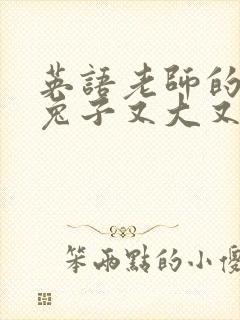 英語老師的
兔子又大又
笨兩點的小優